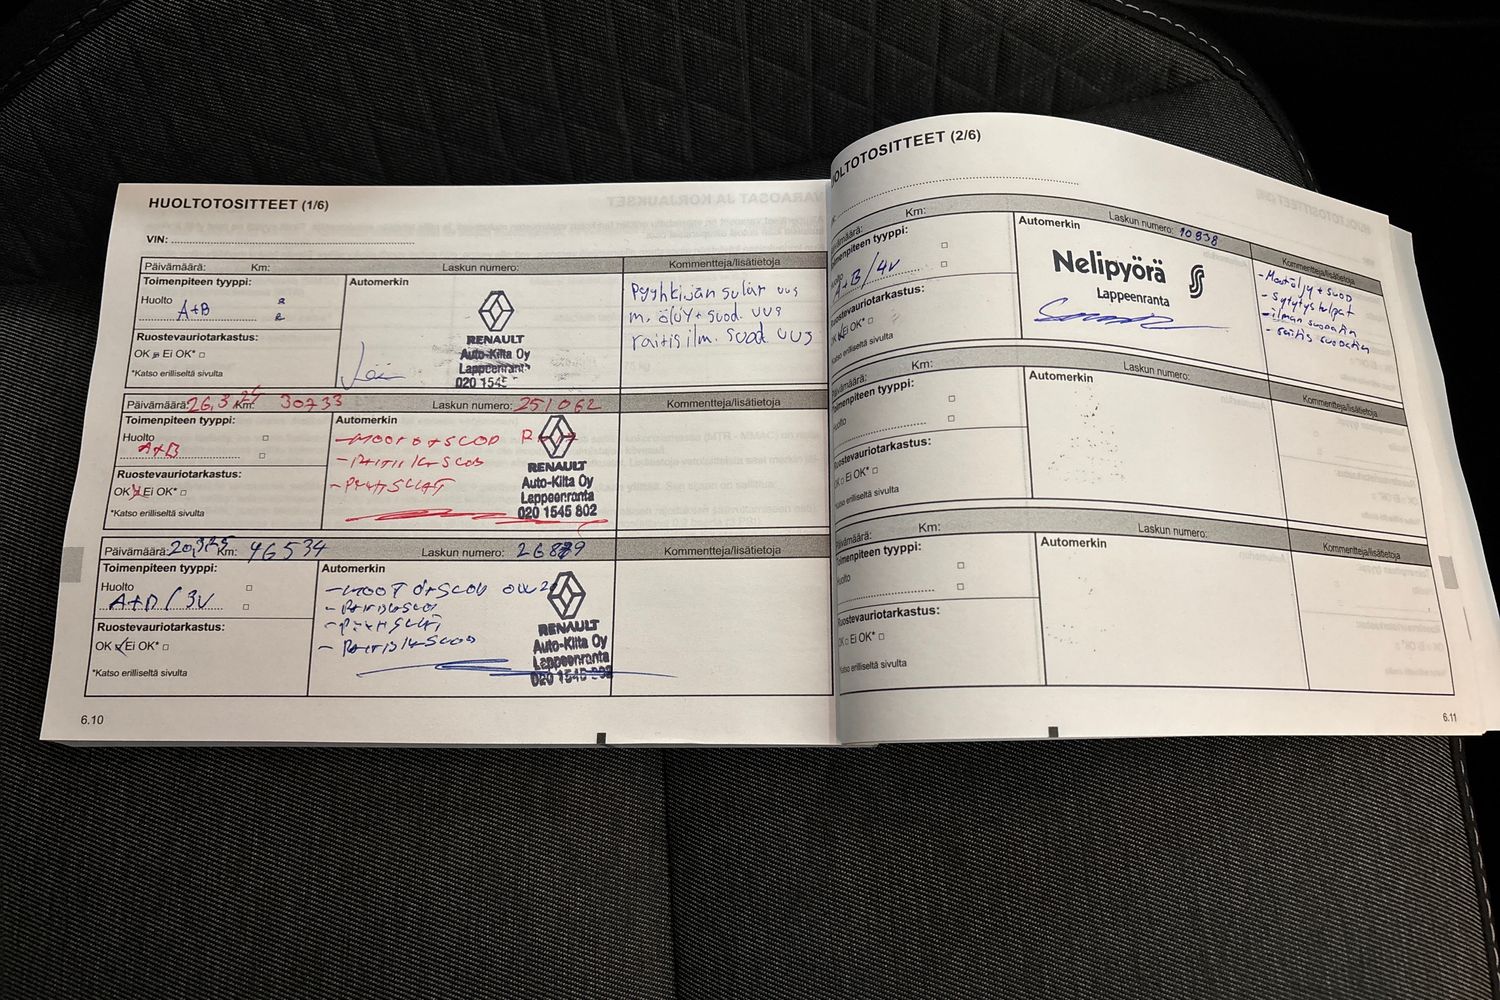 HUOLTOTOSITTEET (1/6)
VIN:
Päivämäärä: Km: Laskun numero: Kommentteja/lisätietoja
Toimenpiteen tyyppi:
Huolto
A+B
Ruostevauriotarkastus:
OK Ei OK*
*Katso erilliseltä sivulta
Automerkin
RENAULT
Auto-Kilta Oy
Lappeenranta
020 1545
Pyyhkijän sulat uus
m. öljy + suod. uus
raitis ilm. suod. uus
Päivämäärä: 26,3,24 Km: 30733 Laskun numero: 251062 Kommentteja/lisätietoja
Toimenpiteen tyyppi:
Huolto
A+B
Ruostevauriotarkastus:
OK Ei OK*
*Katso erilliseltä sivulta
Automerkin
RENAULT
Auto-Kilta Oy
Lappeenranta
020 1545 802
Päivämäärä: 20,3,25 Km: 46534 Laskun numero: Kommentteja/lisätietoja
Toimenpiteen tyyppi:
Huolto
/ 3V
Ruostevauriotarkastus:
OK Ei OK*
*Katso erilliseltä sivulta
Automerkin
RENAULT
Auto-Kilta Oy
Lappeenranta
020 1545 802
6.10
HUOLTOTOSITTEET (2/6)
Päivämäärä: Km: Laskun numero: 10838 Kommentteja/lisätietoja
Toimenpiteen tyyppi:
Huolto
A+B/4V
Ruostevauriotarkastus:
OK Ei OK*
*Katso erilliseltä sivulta
Automerkin
Nelipyörä
Lappeenranta
- Moot.öljy + suod
- Sytytystulpat
- ilman suodatin
- raitis suodatin
Päivämäärä: Km: Laskun numero: Kommentteja/lisätietoja
Toimenpiteen tyyppi:
Huolto
Ruostevauriotarkastus:
OK Ei OK*
*Katso erilliseltä sivulta
Automerkin
Päivämäärä: Km: Laskun numero: Kommentteja/lisätietoja
Toimenpiteen tyyppi:
Huolto
Ruostevauriotarkastus:
OK Ei OK*
*Katso erilliseltä sivulta
Automerkin
6.11